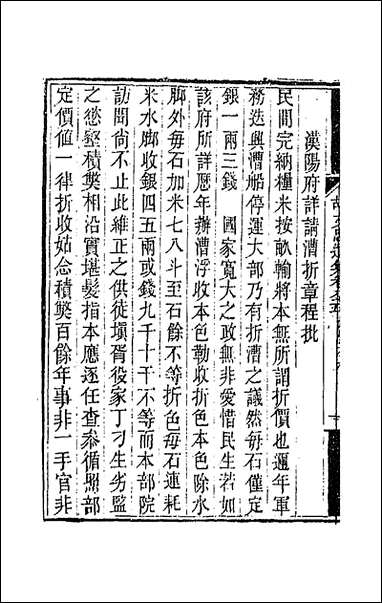 漢陽府詳請漕折章程批
民間完納糧米按畝輸將本無所謂折價也邇年軍
務迭興漕船停運大部乃有折漕之議然每石僅定
銀一兩三錢　國家寬大之政無非愛惜民生若如
該府所詳歷年辦漕浮收本色勒收折色本色除水
腳外每石加米七八斗至石餘不等折色每石連耗
米水腳收銀四五兩或錢九千十千不等而本部院
訪聞尚不止此維正之供徒填胥役家丁刁生劣監
之慾壑積獘相沿實堪髮指本應逐任查參循照部
定價值一律折收姑念積獘百餘年事非一手官非